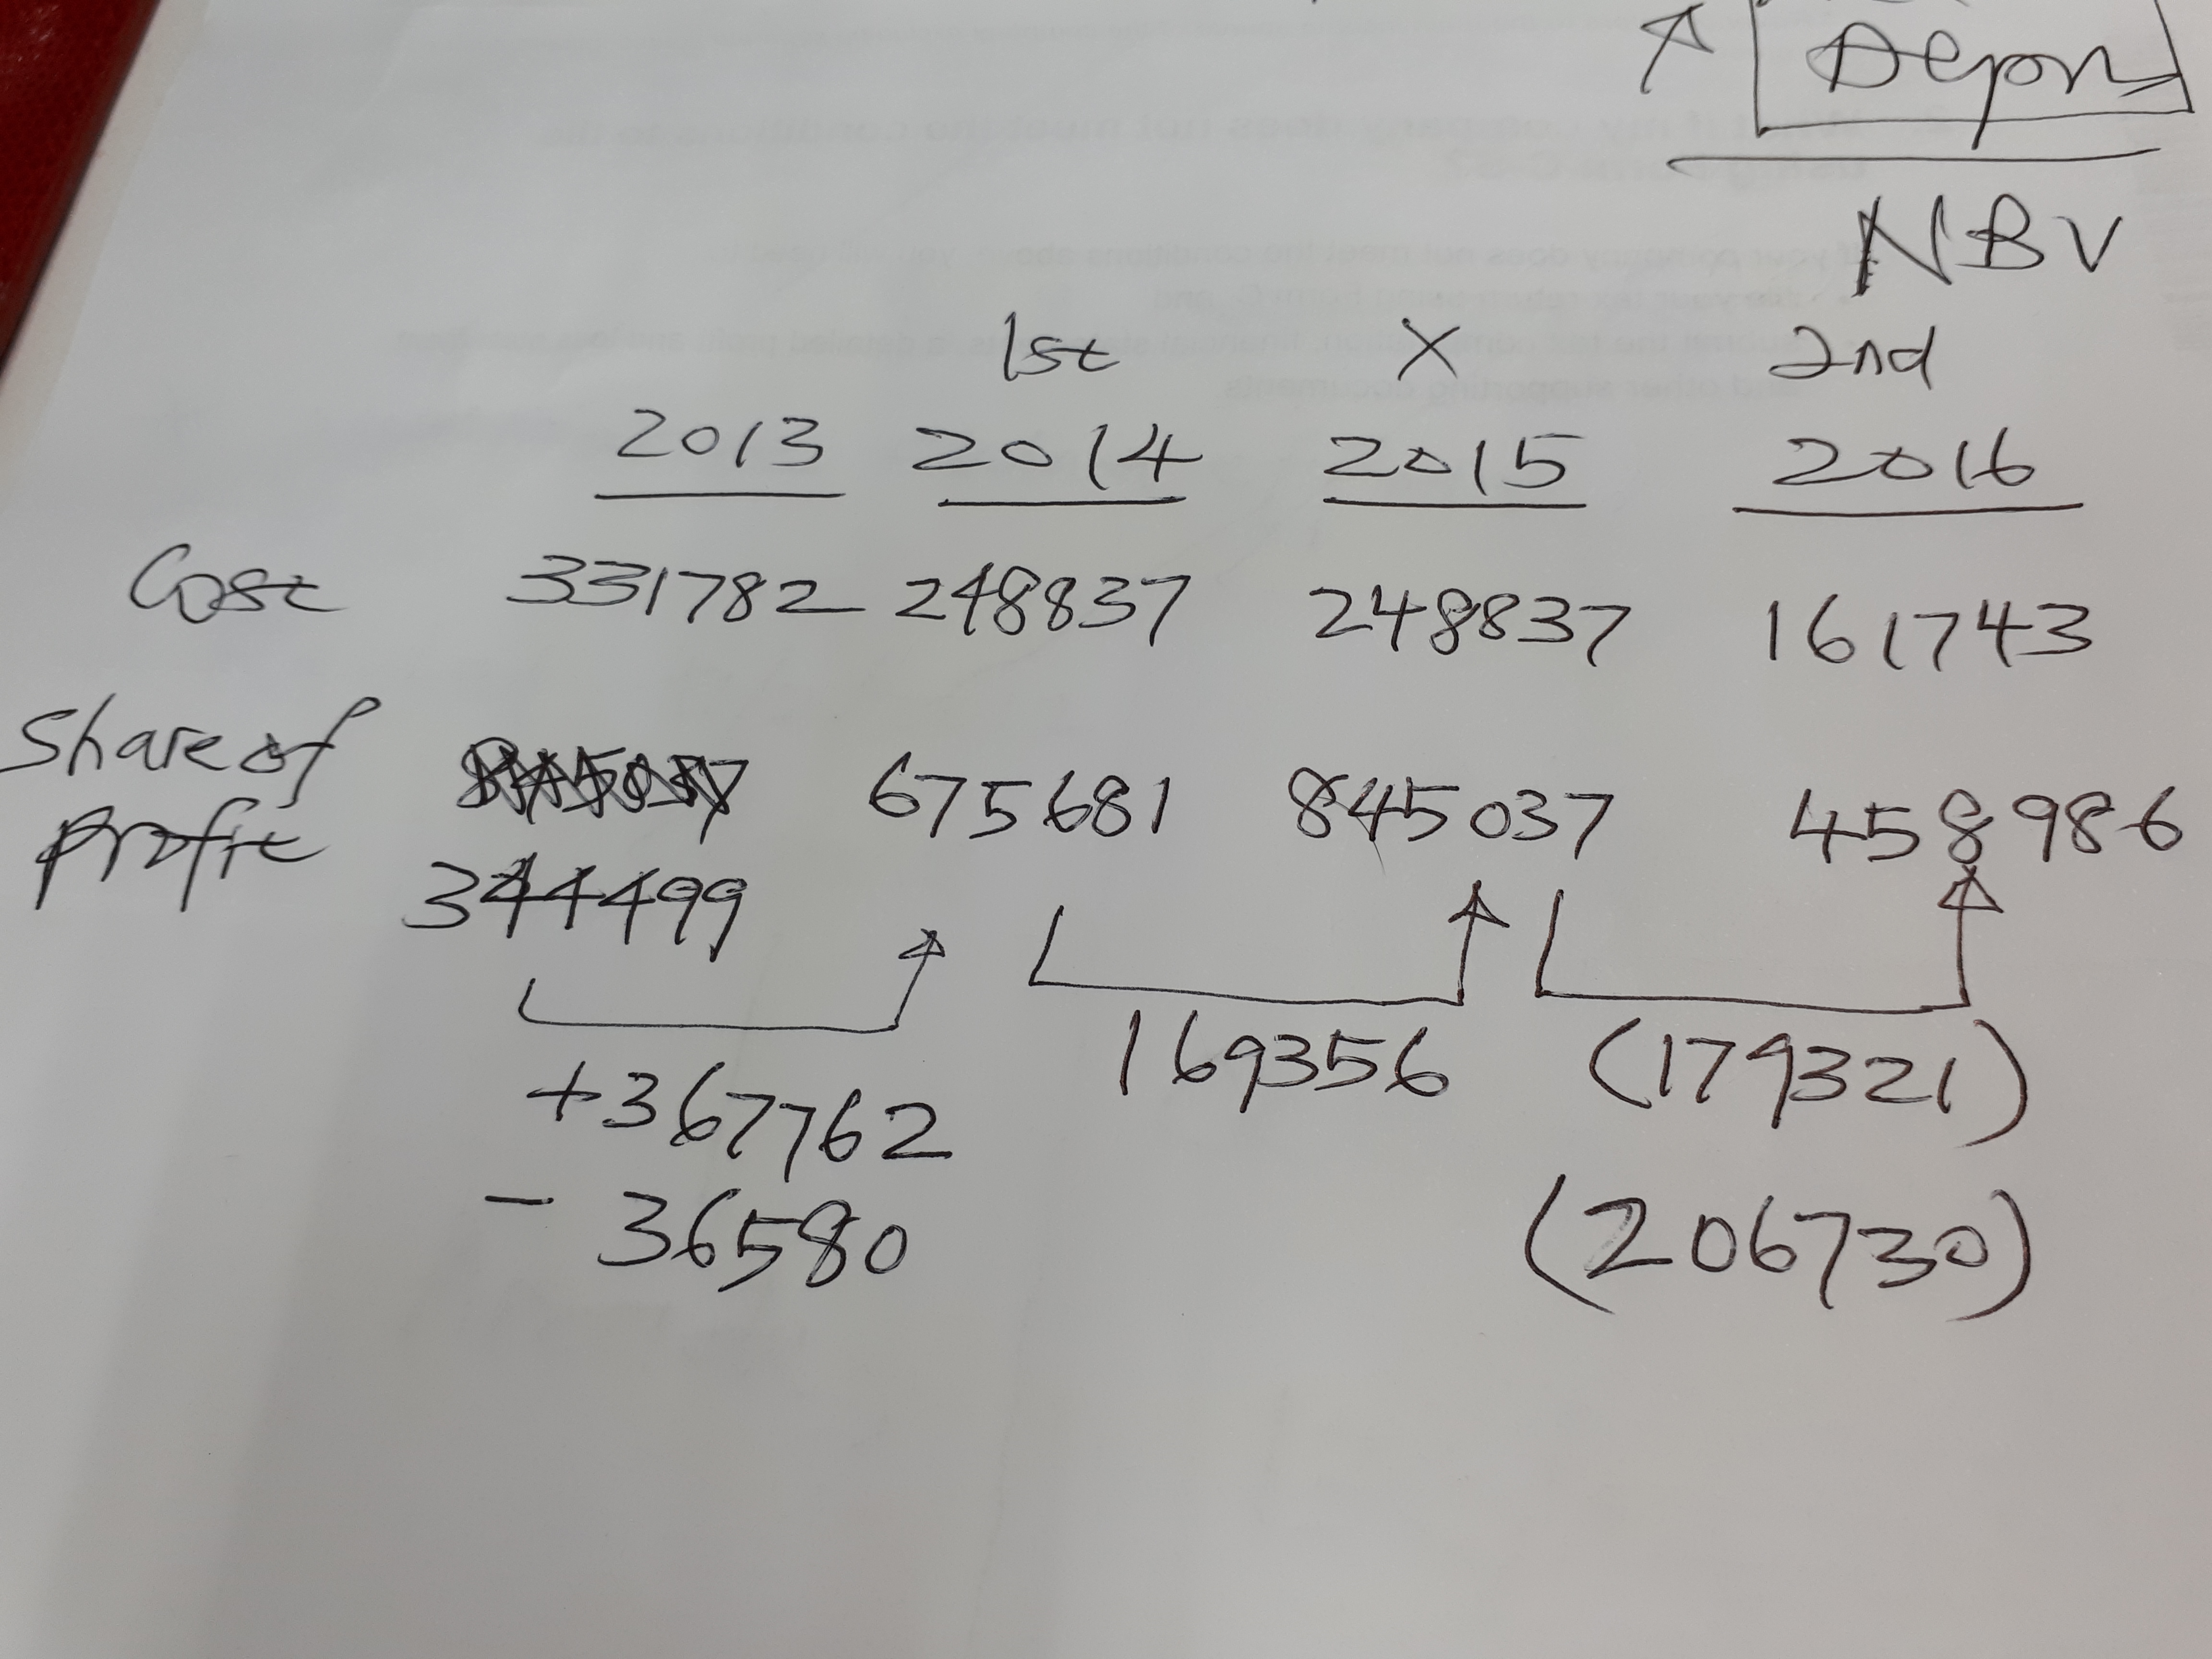 Depon
NBV
1st X 2nd
2013 2014 2015 2016
Cost 331782 248837 248837 161743
Share of
profit 675681 845037 458986
344499
+367762 169356 (179321)
- 36580 (206730)